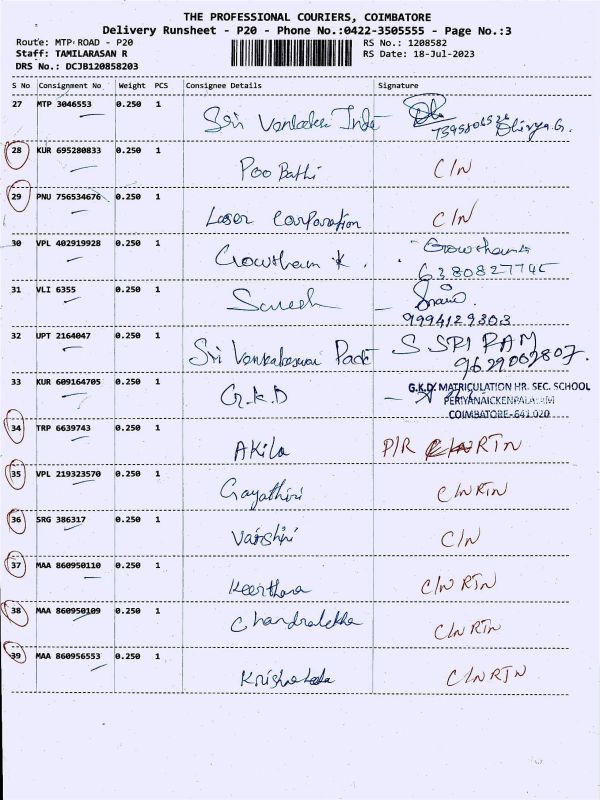 THE PROFESSIONAL COURIERS, COIMBATORE
Delivery Runsheet - P20 - Phone No.:0422-3505555 - Page No.:3
Route: MTP ROAD - P20 RS No.: 1208582
Staff: TAMILARASAN R RS Date: 18-Jul-2023
DRS No.: DCJB120858203
S No Consignment No Weight PCS Consignee Details Signature
27 MTP 3046553 0.250 1
Sri Venkates Inde Dhivya.G.
28 KUR 695280833 0.250 1
Poo Bathi C/N
29 PNU 756534676 0.250 1
Laser Corporation C/N
30 VPL 402919928 0.250 1
Gowtham K. Gowtham
6380827745
31 VLI 6355 0.250 1
Suresh
9994129303
32 UPT 2164047 0.250 1
Sri Venkateswai Pack S SRI RAM
9629002807.
33 KUR 609164705 0.250 1
G.K.D G.K.D. MATRICULATION HR. SEC. SCHOOL
PERIYANAICKENPALAYAM
COIMBATORE-641 020
34 TRP 6639743 0.250 1
Akila P/R C/N RTN
35 VPL 219323570 0.250 1
Gayathiri C/N RTN
36 SRG 386317 0.250 1
Varshini C/N
37 MAA 860950110 0.250 1
Keerthana C/N RTN
38 MAA 860950109 0.250 1
Chandralekha C/N RTN
39 MAA 860956553 0.250 1
Krishna C/N RTN